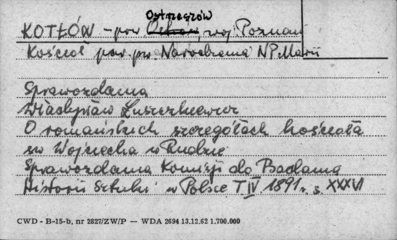 Ostrzeszów
KOTŁÓW - pow. , woj. Poznań
Kościół par. pw. Narodzenia NP Marii
Sprawozdania
Władysław Łuszczkiewicz
O romańskich szczegółach kościoła
św Wojciecha w Rudzie
Sprawozdania Komisji do Badania
Historii Sztuki w Polsce T IV 1891 r. s. XXXVI
CWD - B-15-b, nr 2827/ZW/P — WDA 2694 13.12.62 1.700.000